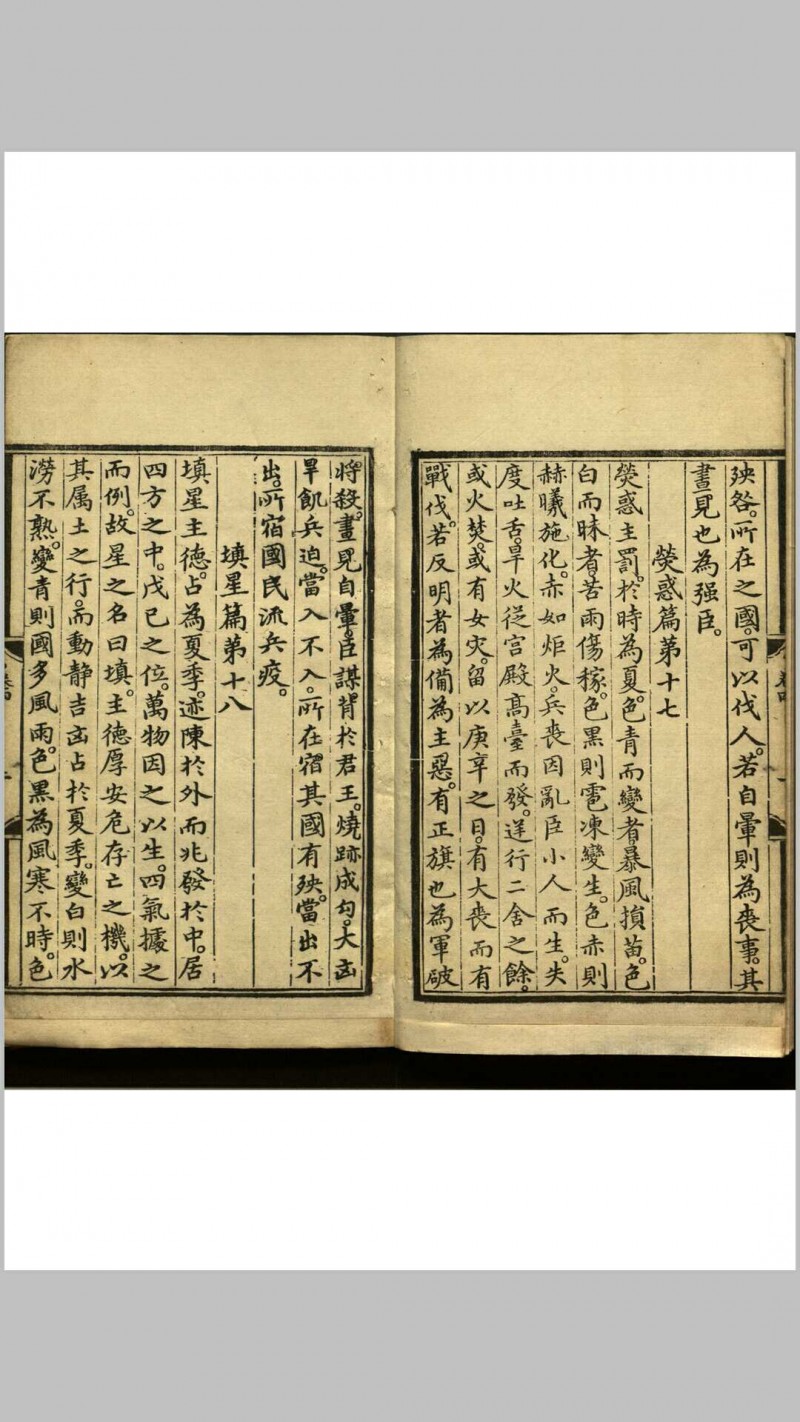 殃咎。所在之國。可以伐人。若自暈則為喪事。其
晝見也為强臣。
熒惑篇第十七
熒惑主罰。於時為夏。色青而變者暴風損苗。色
白而昧者苦雨傷稼。色黑則雹凍變生。色赤則
赫曦施化。赤如炬火。兵喪因亂臣小人而生。失
度吐舌。旱火從宮殿高臺而發。逆行二舍之餘。
或火焚。或有女灾。留以庚辛之日。有大喪而有
戰伐。若反明者為備為主惡。有正旗也為軍破
將殺。晝見自暈。臣謀背於君王。燒跡成勾。大凶
旱飢兵迫。當入不入。所在宿其國有殃。當出不
出。所宿國民流兵疫。
填星篇第十八
填星主德。占為夏季。迹陳於外而兆發於中。居
四方之中。戊己之位。萬物因之以生。四氣據之
而例。故星之名曰填。主德厚安危存亡之機。以
其属土之行。而動静吉凶占於夏季。變白則水
澇不熟。變青則國多風雨。色黑為風寒不時。色